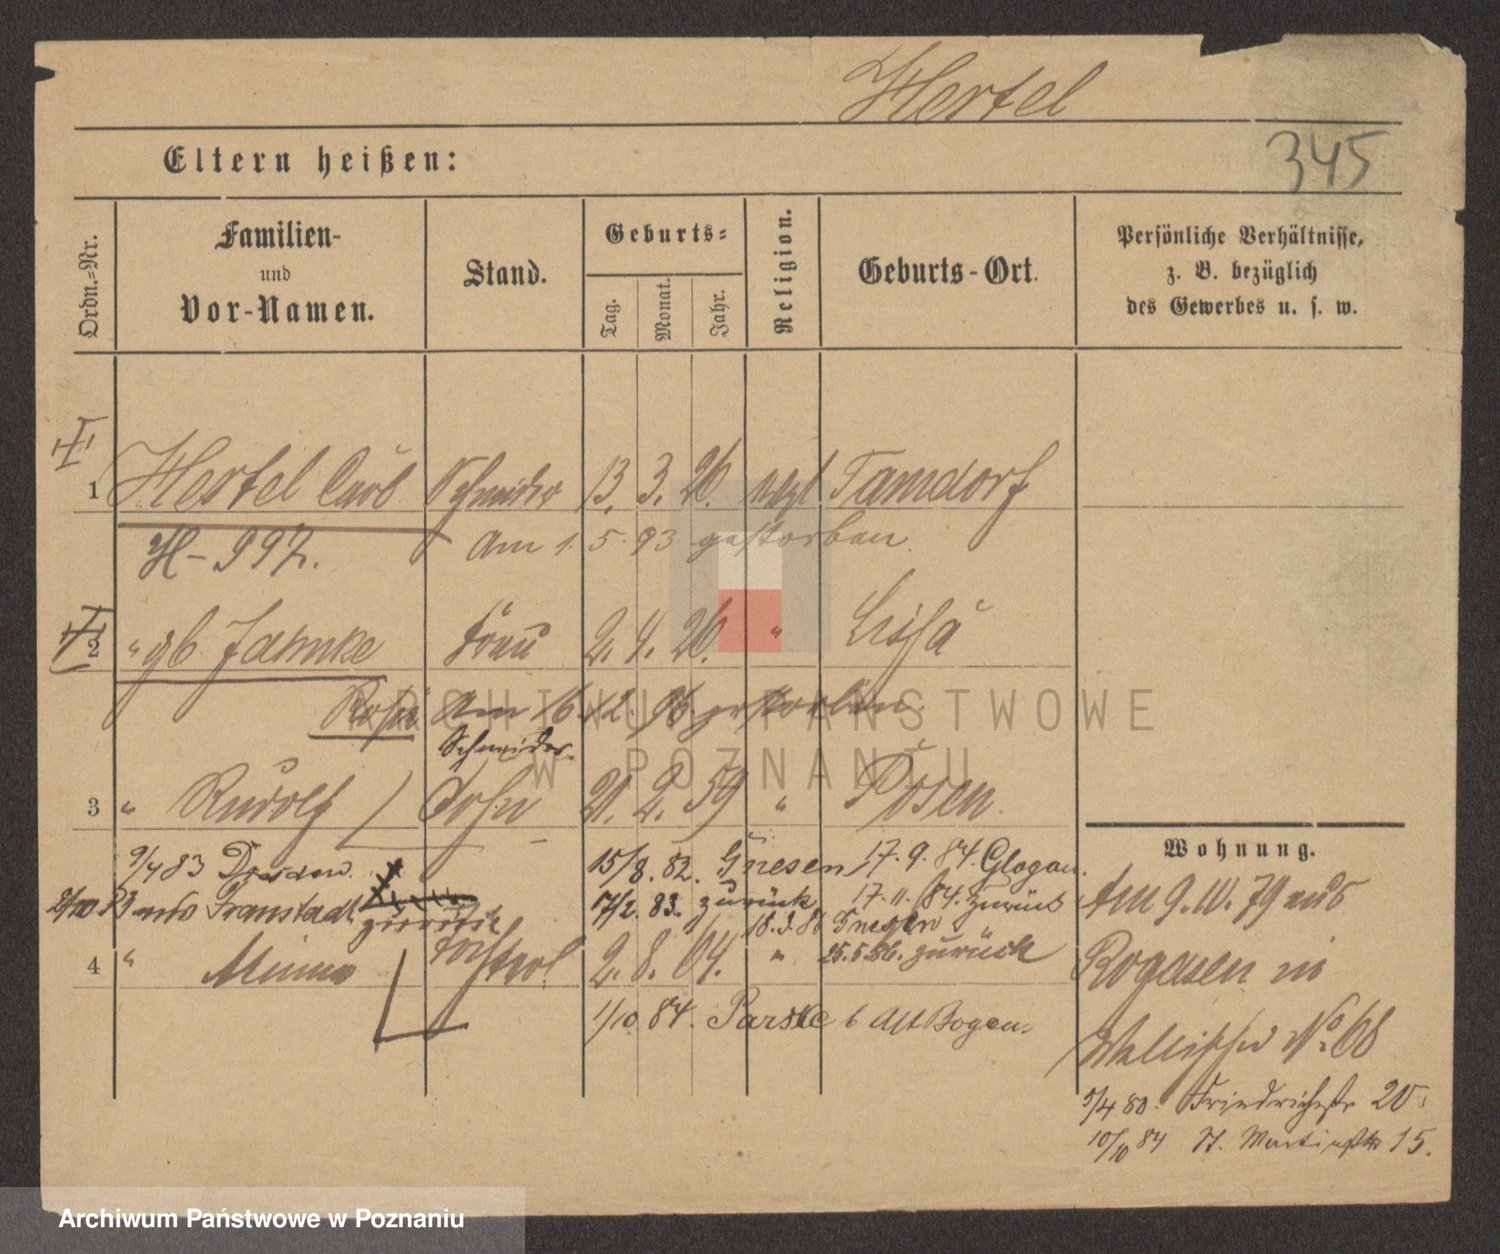 Hertel
345
Eltern heißen:
Ordn.-Nr.
Familien-
und
Vor-Namen.
Stand.
Geburts-
Tag.
Monat.
Jahr.
Religion.
Geburts-Ort.
Persönliche Verhältnisse,
z. B. bezüglich
des Gewerbes u. s. w.
1 Hertel Carl Schneider 13. 3. 26. evgl Tamdorf
Am 1. 5. 93 gestorben.
2 " gb. Jahnke Frau 2. 4. 26. " Lissa
Rosa Am 16. 12. 96 gestorben.
Schneider
3 " Rudolf Sohn 21. 2. 59 " Posen.
9/4 83 Dresden. 15/8. 82. Gnesen 17. 9. 84. Glogau.
Fraustadt zurück 17/2. 83. zurück 17. 11. 84. zurück
18. 3. 86 Gnesen
25. 5. 86. zurück
4 " Minna Tochter 2. 8. 64. "
1/10 84. Parske b Alt Bogen.
Wohnung.
Am 9. 10. 79 aus
Rogasen in
Wallischei No. 68
5/4 80. Friedrichstr 20.
10/10 84 St. Martinstr 15.
ARCHIWUM PAŃSTWOWE
W POZNANIU
Archiwum Państwowe w Poznaniu